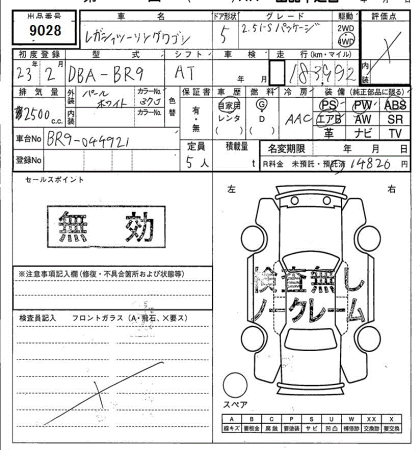 出品番号 車名 ドア形状 グレード 駆動 評価点
9028 レガシィツーリングワゴン 5 2.5i-Sパッケージ 2WD 4WD
初度登録 型式 シフト 車検 走行(km・マイル) 内装
23年2月 DBA-BR9 AT 年 月
排気量 外装 カラーNo. 内装 カラーNo. 色替 保証書 車歴 燃料 冷房 装備(純正部品に限る)
2500c.c. パールホワイト 37J 有・無 自家用 レンタ G D AAC PS PW ABS
エアB AW SR
革 ナビ TV
車台No BR9-044921 定員 積載量 名変期限 年 月 日
登録No 5人 t R料金 未預託・預託済 14820円
セールスポイント 左 右
無効
※注意事項記入欄(修復・不具合箇所および状態等)
検査無し
ノークレーム
検査員記入 フロントガラス(A・飛石、×要ス)
スペア
A B C P S U W X XX
線キズ 要補修 交換済 要交換